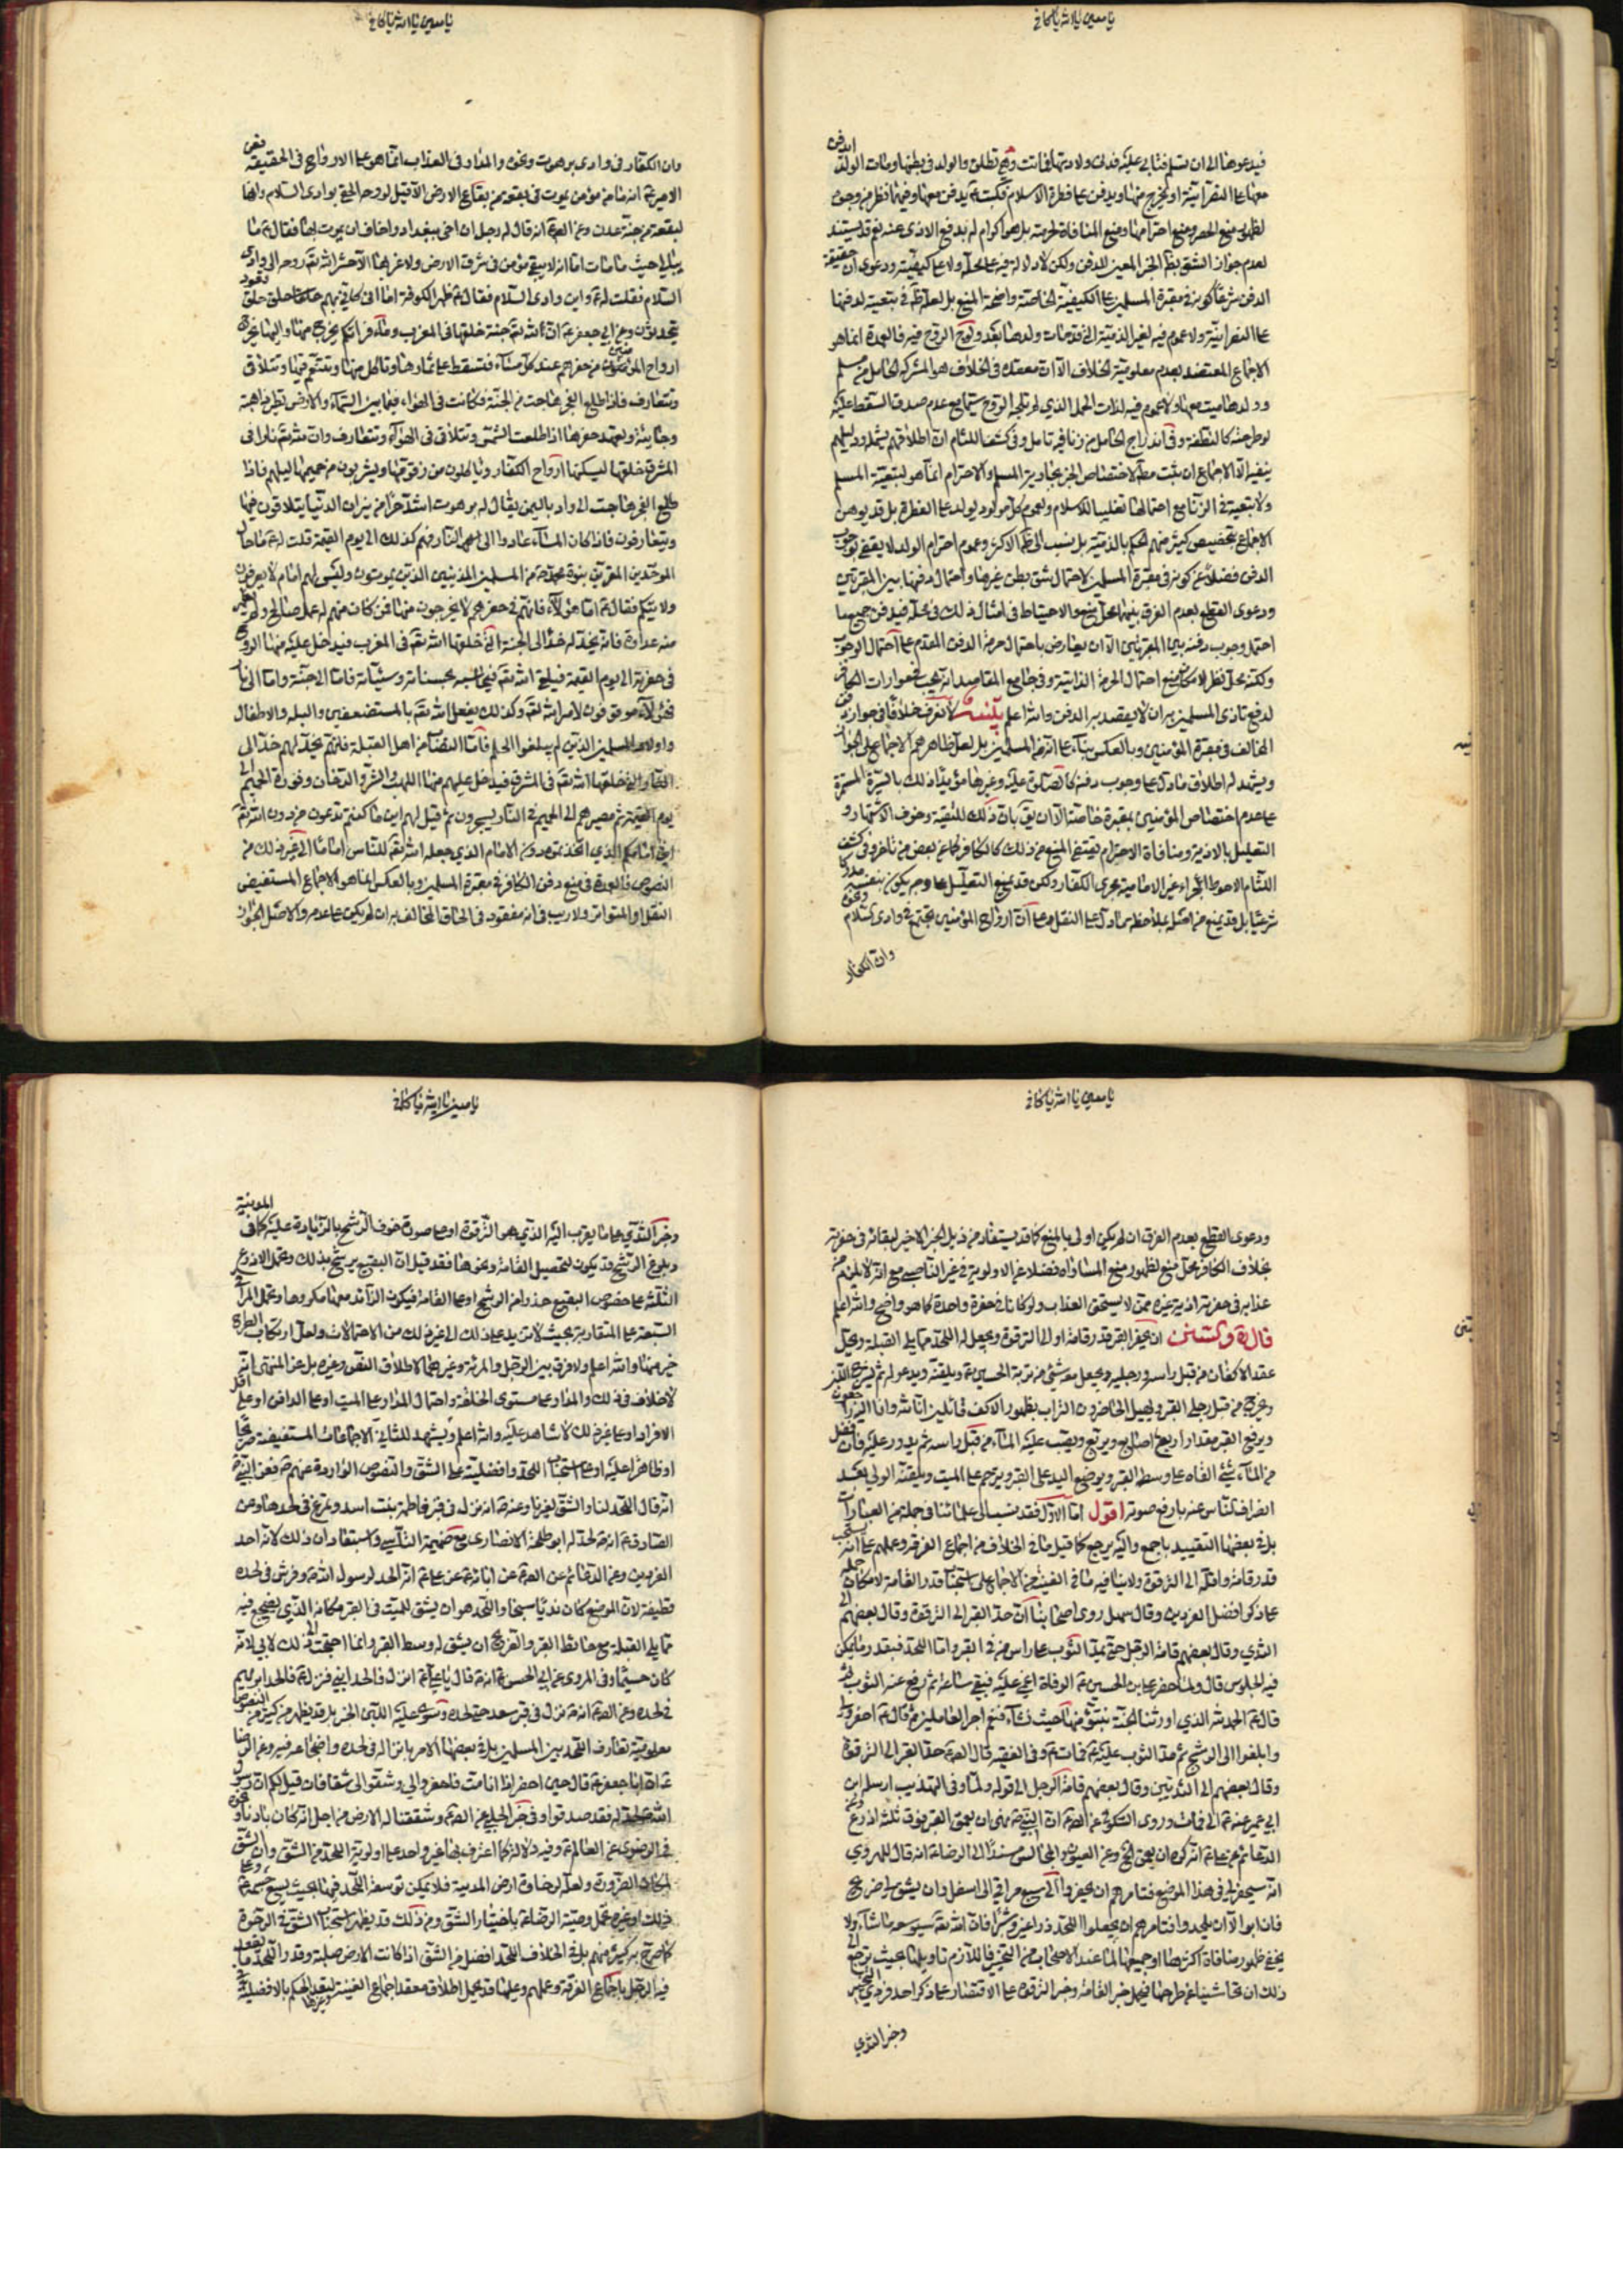 يا معين يا الله يا كافي
فيدعوها الى ان تسلم فتابى عليه فدنى ولادتها فماتت وهي تطلق والولد في بطنها ومات الولد
معها على النصرانية او يخرج منها ويدفن على فطرة الاسلام فكتب ع يدفن معها وفيهما نظر من وجوه
لعدم جواز الشق بظ الخبر المعين للدفن ولكن لا دلالة فيه على محله ولا على كيفيته ودعوى ان حقيقة
الدفن شرعا كونه في مقبرة المسلمين على الكيفية الخاصة واضحة المنع بل لعله ظ في تبعيته لدفنها
الاجماع المعتضد بعدم معلومية الخلاف الا ان معقده في الخلاف هو المشركة الحامل من مسلم
وولدها ميت معها ولا عموم فيه لذات الحمل الذي لم تلجه الروح سيما مع عدم صدق السقط عليه
ولا تبعية في الزنا مع احتمالها تغليبا للاسلام ولعموم كل مولود يولد على الفطرة بل قد يوهن
الاجماع بتخصيص كثير منهم الحكم بالذمية بل نسب الى ظ الاكثر وعموم احترام الولد لا يقضي بوجوب
الدفن فضلا عن كونه في مقبرة المسلمين لاحتمال شق بطن غيرها واحتمال دفنها بين المقبرتين
ودعوى القطع بعدم الفرق بينهما محل منع والاحتياط في امثال ذلك في محله فيدفن جميعا
لدفع تاذى المسلمين به ان لا يقصد به الدفن والله اعلم
المخالف في مقبرة المؤمنين وبالعكس بناء على انهم من المسلمين بل لعل ظاهرهم الاجماع على الجواز
ويشهد له اطلاق ما دل على وجوب دفنه كالصلوة عليه وغيرها مؤيدا ذلك بالسيرة المستمرة
على عدم اختصاص المؤمنين بمقبرة خاصة الا ان يق بان ذلك للتقية وخوف الاشتهار و
التعليل بالاذية ومنافاة الاحترام يقتضي المنع من ذلك كالكافر كما عن بعض من تاخر وفي كشف
اللثام الاحوط اجراء غير الامامية مجرى الكفار ولكن قد يمنع التعليل
شرعيا بل قد يمنع من اصله بملاحظة ما دل على النقل وعلى ان ارواح المؤمنين تجتمع في وادى السلام
وان الكفار
يا معين يا الله يا كافي
وان الكفار في وادى برهوت ونحوه والمدار في العذاب انما هو على الارواح في الحقيقة فعن
الامير ع انه ما من مؤمن يموت في بقعة من بقاع الارض الا قيل لروحه الحقي بوادى السلام وانها
لبقعة من جنة عدن وعن الص ع انه قال له رجل ان اخى ببغداد واخاف ان يموت بها فقال ع ما
يبالى حيث ما مات اما انه لا يبقى مؤمن في شرق الارض ولا غربها الا حشر الله تع روحه الى وادى
السلام فقلت له ع واين وادى السلام فقال ع ظهر الكوفة اما انى كانى بهم حلق حلق قعود
يتحدثون وعن ابي جعفر ع ان لله تع جنة خلقها في المغرب وماء فراتكم يخرج منها واليها يخرج
ارواح المؤمنين من حفرهم عند كل مساء فتسقط على ثمارها وتاكل منها وتتنعم فيها وتتلاقى
وتتعارف فاذا طلع الفجر هاجت من الجنة فكانت في الهواء فيما بين السماء والارض تطير ذاهبة
وجائية وتعهد حفرها اذا طلعت الشمس وتتلاقى في الهواء وتتعارف وان لله تع نارا في
المشرق خلقها ليسكنها ارواح الكفار وياكلون من زقومها ويشربون من حميمها ليلهم فاذا
طلع الفجر هاجت الى واد باليمن يقال له برهوت اشد حرا من نيران الدنيا يتلاقون فيها
ويتعارفون فاذا كان المساء عادوا الى النار فهم كذلك الى يوم القيمة قلت له ع ما حال
الموحدين المقرين بنبوة محمد ص من المسلمين المذنبين الذين يموتون وليس لهم امام لا يعرفون
ولايتكم فقال ع اما هؤلاء فانهم في حفرهم لا يخرجون منها فمن كان منهم له عمل صالح ولم يظهر
منه عداوة فانه يخد له خدا الى الجنة التي خلقها الله تع في المغرب فيدخل عليه منها الروح
في حفرته الى يوم القيمة فيلقى الله تع فيحاسبه بحسناته وسيئاته فاما الى جنة واما الى نار
فهؤلاء موقوفون لامر الله تع وكذلك يفعل الله تع بالمستضعفين والبله والاطفال
واولاد المسلمين الذين لم يبلغوا الحلم فاما النصاب من اهل القبلة فانهم يخد لهم خدا الى
النار التي خلقها الله تع في المشرق فيدخل عليهم منها اللهب والشرر والدخان وفورة الحميم الى
يوم القيمة ثم مصيرهم الى الحميم ثم في النار يسجرون ثم قيل لهم اين ما كنتم تدعون من دون الله تع
اين امامكم الذي اتخذتموه دون الامام الذي جعله الله تع للناس اماما الى غير ذلك من
النصوص فالعمدة في منع دفن الكافر في مقبرة المسلمين وبالعكس انما هو الاجماع المستفيض
النقل او المتواتر ولا ريب في انه مفقود في الحاق المخالف به ان لم يكن على عدمه والاصل الجواز
يا معين يا الله يا كافي
ودعوى القطع بعدم الفرق ان لم يكن اولى بالمنع كما قد يستفاد من ذيل الخبر الاخير لبقائه في حفرته
بخلاف الكافر محل منع لظهور منع المساواة فضلا عن الاولوية في غير الناصب مع انه لا يلزم من
عذابه في حفرته اذية غيره ممن لا يستحق العذاب ولو كانا في حفرة واحدة كما هو واضح والله اعلم
قال ره وسننه ان يحفر القبر قدر قامة او الى الترقوة ويجعل له اللحد مما يلي القبلة ويحل
عقد الاكفان من قبل راسه ورجليه ويجعل معه شئ من تربة الحسين ع ويلقنه ويدعو له ثم يشرج اللبن
ويخرج من قبل رجلي القبر ويهيل الحاضرون التراب بظهور الاكف قائلين انا لله وانا اليه راجعون
ويرفع القبر مقدار اربع اصابع ويربع ويصب عليه الماء من قبل راسه ثم يدور عليه فان فضل
من الماء شئ القاه على وسط القبر ويوضع اليد على القبر ويترحم على الميت ويلقنه الولي بعد
انصراف الناس عنه بارفع صوته اقول اما الاول فقد نسب الى علمائنا في جملة من العبارات
بل في بعضها التقييد باجمع واليه يرجع كما قيل ما في الخلاف من اجماع الفرقة وعملهم على انه يستحب
قدر قامة واقله الى الترقوة ولا ينافيه ما في الغنية من الاجماع على استحباب قدر القامة لامكان حمله
على ذكر افضل الفردين وقال سهل روى اصحابنا ان حد القبر الى الترقوة وقال بعضهم الى
الثدي وقال بعضهم قامة الرجل حتى يمد الثوب على راس من في القبر واما اللحد فبقدر ما يمكن
فيه الجلوس قال ولما حضر علي بن الحسين ع الوفاة اغمي عليه فبقي ساعة ثم رفع عنه الثوب ثم
قال ع الحمد لله الذي اورثنا الجنة نتبوء منها حيث نشاء فنعم اجر العاملين ثم قال ع احفروا لي
وابلغوا الى الرشح ثم مد الثوب عليه ع فمات ع وفي الفقيه قال الص ع حد القبر الى الترقوة
وقال بعضهم الى الثديين وقال بعضهم قامة الرجل الى قوله ولما وفي التهذيب ارسله ابن
ابي عمير عنه ع الى فمات وروى السكوني عن الص ع ان النبي ص نهى ان يعمق القبر فوق ثلث اذرع
الدعائم عن علي ع انه كره ان يعمق الخ وعن العيون والمجالس مسندا الى الرضا ع انه قال للهروي
انه سيحفر لي في هذا الموضع فتامرهم ان يحفروا الي سبع مراقي الى اسفل وان يشق لي ضريح
فان ابوا الا ان يلحدوا فتامرهم ان يجعلوا اللحد ذراعين وشبرا فان الله تع سيوسعه ما شاء ولا
يخفى ظهور منافاة اكثرها او جميعها لما عند الاصحاب من التحيز فاللازم تاويلها بحيث ترجع الى
ذلك ان تحاشينا عن طرحها فيحمل خبر القامة وخبر الترقوة على الاقتصار على ذكر احد فردي
وخبر الثدي
يا معين يا الله يا كافي
وخبر الثدي على ما يقرب اليه الذي هو الترقوة او على صورة خوف الرشح بالزيادة عليه كما في المدينة
وبلوغ الرشح قد يكون لتحصيل القامة ونحوها فقد قيل ان البقيع يرشح بذلك وتحمل الاذرع
الثلثة على خصوص البقيع حذرا من الرشح او على القامة فيكون الزائد معها مكروها وتحمل المراقي
السبعة على المتقاربة بحيث لا تزيد على ذلك الى غير ذلك من الاحتمالات ولعل ارتكاب الطرح
خير منها والله اعلم ولا فرق بين الرجل والمرئة وغيرهما لاطلاق النص وغيره بل عن المنتهى انه
لا خلاف في ذلك والمدار على مستوى الخلقة واحتمال المدار على الميت او على الدافن او على اقل
الافراد او على غير ذلك لا شاهد عليه والله اعلم ويشهد للثاني الاجماعات المستفيضة صريحا
او ظاهرا عليه او على استحباب اللحد وافضليته على الشق والنصوص الواردة عنهم ع فعن النبي ص
انه قال اللحد لنا والشق لغيرنا وعنه ص انه نزل في قبر فاطمة بنت اسد وتمرغ في لحدها وعن
الصادق ع انه ص لحد له ابو طلحة الانصارى مع ضميمة التاسي واستفادة ان ذلك لانه احد
الفردين وعن الدعائم عن الص ع عن ابائه ع عن علي ع انه الحد لرسول الله ص وفرش في لحده
قطيفة لان الموضع كان نديا سبخا واللحد هو ان يشق للميت في القبر مكانه الذي يضجع فيه
مما يلي القبلة مع حائط القبر والضريح ان يشق له وسط القبر وانما احتجت الى ذلك لابي لانه
كان جسيما وفى المروى عن ابى الحسن ع انه ص قال يا علي انزل فالحد ابني فنزل ع فالحد ابرهيم
في لحده وعن الص ع انه ص نزل في قبر سعد حتى لحده وسوى عليه اللبن الخبر بل قد يظهر من كثير من النصوص
معلومية تعارف اللحد بين المسلمين بل في بعضها الامر بانزاله في لحده واضجاعه فيه وعن الرضا
ع ان ابا جعفر ع قال حين احضر اذا انا مت فاحفروا لي وشقوا لي شقا فان قيل لكم ان رسول
الله ص لحد له فقد صدقوا وفي خبر الحلبي عن الص ع وشققنا له الارض من اجل انه كان بادنا ونحوه
في الرضوى عن العالم ع وفيه دلالة كما اعترف بها غير واحد على اولوية اللحد من الشق وان الشق
لمكان الضرورة ولعله لرخاوة ارض المدينة فلا يمكن توسعة اللحد فيها بحيث يسع جسمه ع
ذلك او غيره تحمل وصية الرضا ع باختيار الشق ومن ذلك قد يظهر استحباب الشق في الرخوة
كما صرح به كثير منهم بل في الخلاف اللحد افضل من الشق اذا كانت الارض صلبة وقدر اللحد ما يقعد
فيه الرجل باجماع الفرقة وعملهم وعليها قد يحمل اطلاق معقد اجماع الغنية